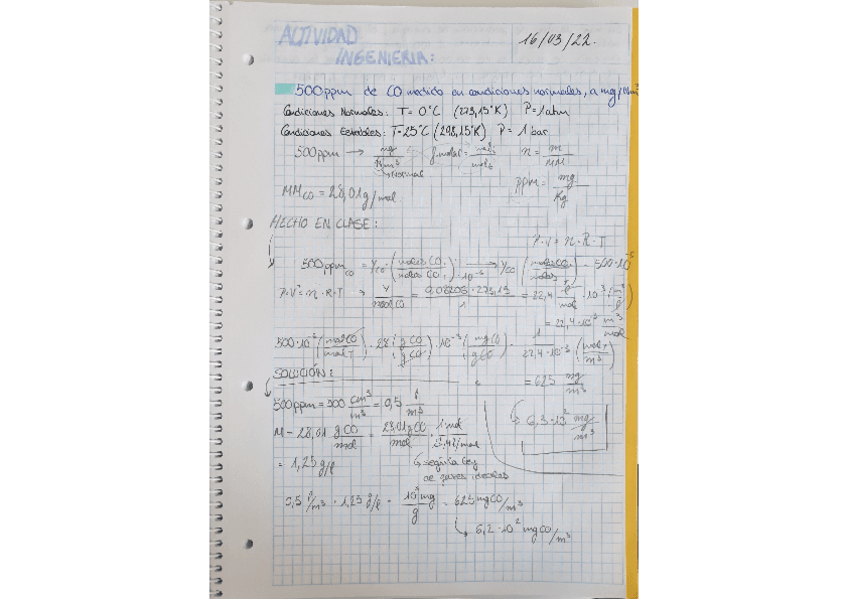 ACTIVIDAD
INGENIERIA:
16/03/22.
500ppm de CO medido en condiciones normales, a mg/Nm³
Condiciones Normales: T= 0°C (273,15°K) P=1atm
Condiciones Estables: T=25°C (298,15°K) P= 1 bar
500ppm → mg/Nm³ n = m/MM
Normal
ppm = mg/Kg
MM CO = 28,01g/mol
HECHO EN CLASE:
P·V = n·R·T
500ppm CO = Yco · (moles CO/moles CO) · → Yco (moles CO/moles) = 500·10
P·V = n·R·T → V/mol CO = 0,08206·273,15/1 = 22,4 l/mol · 10⁻³ (m³/l)
= 22,4·10⁻³ m³/mol
(mol CO/mol T) · 28 (g CO/g CO) · (mg CO/g CO) · 1/22,4·10⁻³ (mol T/m³)
= 625 mg/m³
SOLUCIÓN:
500ppm = 500 cm³/m³ = 0,5 l/m³
6,3·10² mg/m³
M = 28,01 g CO/mol = 28,01 g CO/mol · 1 mol/22,4 l/mol
= 1,25 g/l
según la ley
de gases ideales
0,5 l/m³ · 1,25 g/l · 10³ mg/g = 625 mgCO/m³
6,2·10² mgCO/m³